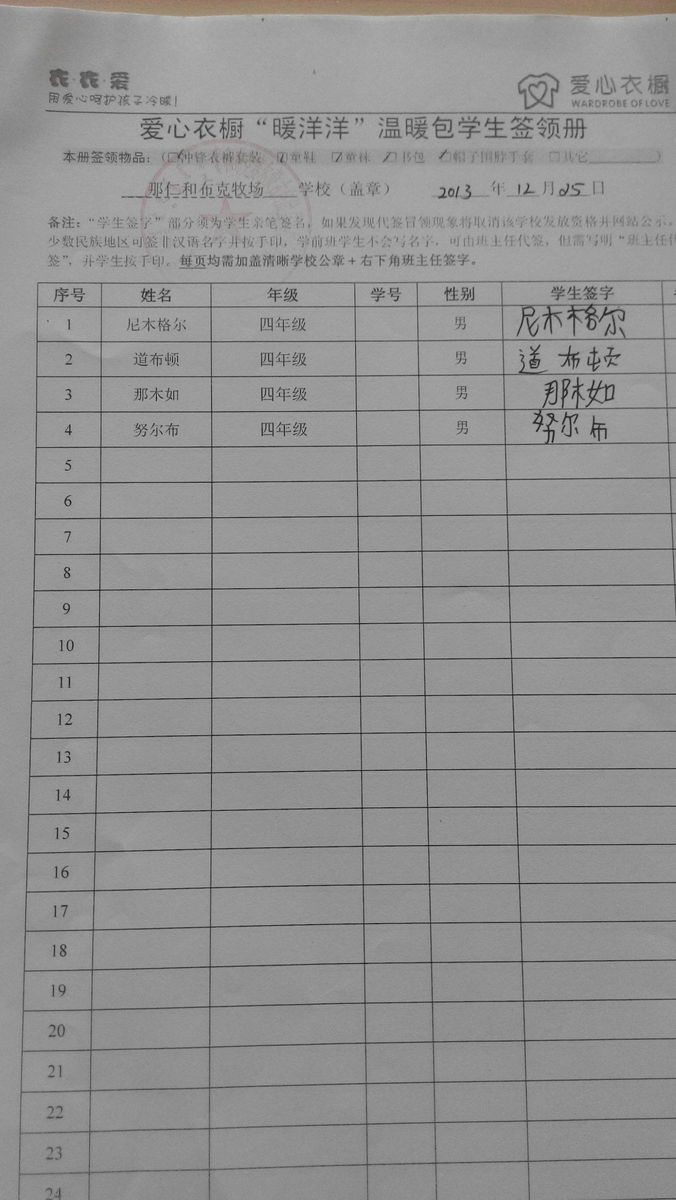 衣·衣·爱
用爱心呵护孩子冷暖!
爱心衣橱
WARDROBE OF LOVE
爱心衣橱“暖洋洋”温暖包学生签领册
本册签领物品:(☑冲锋衣裤套装 ☑童鞋 ☑童袜 ☑书包 ☑帽子围脖手套 □其它 )
那仁和布克牧场 学校(盖章) 2013 年 12 月 25 日
备注:“学生签字”部分须为学生亲笔签名,如果发现代签冒领现象将取消该学校发放资格并网站公示。
少数民族地区可签非汉语名字并按手印,学前班学生不会写名字,可由班主任代签,但需写明“班主任代
签”,并学生按手印。每页均需加盖清晰学校公章+右下角班主任签字。
序号 姓名 年级 学号 性别 学生签字
1 尼木格尔 四年级 男 尼木格尔
2 道布顿 四年级 男 道布顿
3 那木如 四年级 男 那木如
4 努尔布 四年级 男 努尔布
5
6
7
8
9
10
11
12
13
14
15
16
17
18
19
20
21
22
23
24